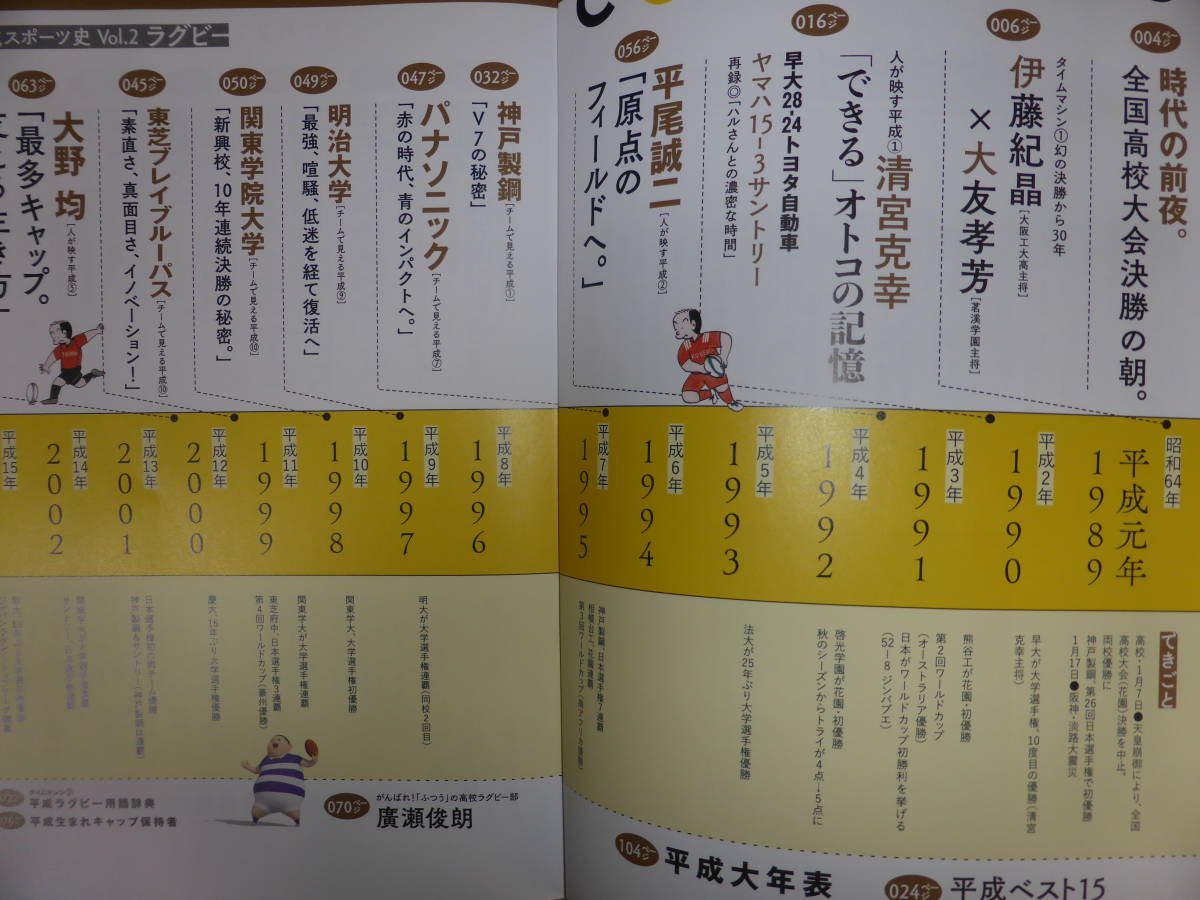 004ページ
時代の前夜。
全国高校大会決勝の朝。
006ページ
タイムマシン①幻の決勝から30年
伊藤紀晶[大阪工大高主将]
×大友孝芳[茗溪学園主将]
016ページ
人が映す平成①
清宮克幸
「できる」オトコの記憶
早大28-24トヨタ自動車
ヤマハ15-3サントリー
再録◎「ハルさんとの濃密な時間」
056ページ
平尾誠二[人が映す平成②]
「原点の
フィールドへ。」
昭和64年
平成元年
1989
平成2年
1990
平成3年
1991
平成4年
1992
平成5年
1993
平成6年
1994
平成7年
1995
できごと
高校・1月7日●天皇崩御により、全国
高校大会(花園)決勝を中止。
両校優勝に
神戸製鋼、第26回日本選手権で初優勝
1月17日●阪神・淡路大震災
早大が大学選手権、10度目の優勝(清宮
克幸主将)
熊谷工が花園・初優勝
第2回ワールドカップ
(オーストラリア優勝)
日本がワールドカップ初勝利を挙げる
(52-8 ジンバブエ)
啓光学園が花園・初優勝
秋のシーズンからトライが4点→5点に
法大が25年ぶり大学選手権優勝
神戸製鋼、日本選手権7連覇
相模台工、花園連覇
第3回ワールドカップ(南アフリカ優勝)
104ページ
平成大年表
024ページ
平成ベスト15
スポーツ史 Vol.2 ラグビー
032ページ
神戸製鋼[チームで見える平成①]
「V7の秘密」
047ページ
パナソニック[チームで見える平成⑦]
「赤の時代、青のインパクトへ。」
049ページ
明治大学[チームで見える平成⑨]
「最強、喧騒、低迷を経て復活へ」
050ページ
関東学院大学[チームで見える平成⑩]
「新興校、10年連続決勝の秘密。」
045ページ
東芝ブレイブルーパス[チームで見える平成⑩]
「素直さ、真面目さ、イノベーション!」
063ページ
大野 均[人が映す平成⑤]
「最多キャップ。
平成8年
1996
平成9年
1997
平成10年
1998
平成11年
1999
平成12年
2000
平成13年
2001
平成14年
2002
平成15年
明大が大学選手権連覇(同校2回目)
関東学大、大学選手権初優勝
関東学大が大学選手権連覇
東芝府中、日本選手権3連覇
第4回ワールドカップ(豪州優勝)
慶大、15年ぶり大学選手権優勝
日本選手権初の両チーム優勝
神戸製鋼&サントリー(神戸製鋼は連覇)
070ページ
がんばれ!「ふつう」の高校ラグビー部
廣瀬俊朗
平成ラグビー用語辞典
平成生まれキャップ保持者